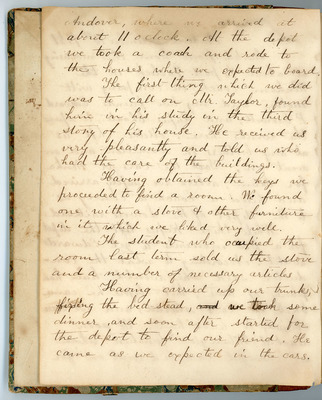 Andover, where we arrived at
about 11 oclock. At the depot
we took a coach and rode to
the houses where we expected to board.
The first thing which we did
was to call on Mr. Taylor, found
him in his study in the third
story of his house. He received us
very pleasantly and told us who
had the care of the buildings.
Having obtained the keys we
proceeded to find a room. We found
one with a stove & other furniture
in it which we liked very well.
The student who occupied the
room last term sold us the stove
and a number of necessary articles
Having carried up our trunks,
fixing the bed stead, and we took some
dinner, and soon after started for
the depot to find our friend. He
came as we expected in the cars.